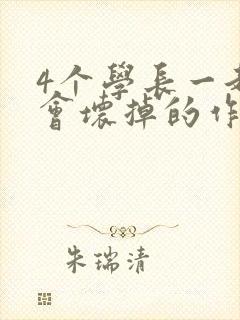 4个學長一
會壞掉的作
朱瑞清